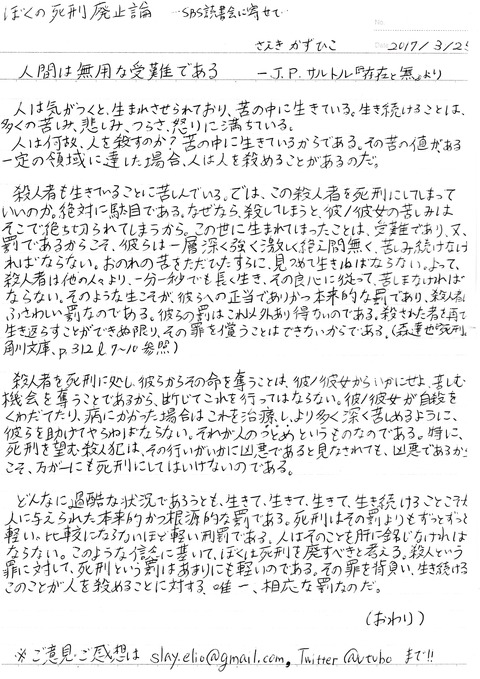 ぼくの死刑廃止論 —SBS読書会に寄せて—
No
さえき かずひこ
Date 2017/3/25
人間は無用な受難である —J.P.サルトル『存在と無』より
人は気がつくと、生まれさせられており、苦の中に生きている。生き続けることは、
多くの苦しみ、悲しみ、つらさ、怒りに満ちている。
人は何故、人を殺すのか? 苦の中に生きているからである。その苦の値がある
一定の領域に達した場合、人は人を殺めることがあるのだ。
殺人者も生きていることに苦しんでいる。では、この殺人者を死刑にしてしまって
いいのか。絶対に駄目である。なぜなら、殺してしまうと、彼/彼女の苦しみは
そこで絶ち切られてしまうから。この世に生まれてしまったことは、受難であり、又、
罰であるからこそ、彼らは一層深く強く激しく絶え間無く、苦しみ続けなけ
ればならない。おのれの苦をただひたすらに、見つめて生きねばならない。よって、
殺人者は他の人々より、一分一秒でも長く生き、その良心に従って、苦しまなければ
ならない。そのような生こそが、彼らへの正当でありかつ本来的な罰であり、殺人者に
ふさわしい罰なのである。彼らの罰はこれ以外あり得ないのである。殺された者を再び
生き返らすことができぬ限り、その罪を償うことはできないからである。(森達也『死刑』
角川文庫、p.312 l.7~10 参照)
殺人者を死刑に処し、彼らからその命を奪うことは、彼/彼女からいかにせよ、苦しむ
機会を奪うことであるから、断じてこれを行ってはならない。彼/彼女が自殺を
くわだてたり、病にかかった場合はこれを治療し、より多く深く苦しめるように、
彼らを助けてやらねばならない。それが人のつとめというものなのである。特に、
死刑を望む殺人犯は、その行いがいかに凶悪であると見なされても、凶悪であるか
こそ、万が一にも死刑にしてはいけないのである。
どんなに過酷な状況であろうとも、生きて、生きて、生きて、生き続けることこそが
人に与えられた本来的かつ根源的な罰である。死刑はその罰よりもずっとずっと
軽い。比較にならないほど軽い刑罰である。人はそのことを肝に銘じなければ
ならない。このような信念に基いて、ぼくは死刑を廃すべきと考える。殺人という
罪に対して、死刑という罰はあまりにも軽いのである。その罪を背負い、生き続ける
このことが人を殺めることに対する、唯一、相応な罰なのだ。
(おわり)
※ご意見・ご感想は slay.elio@gmail.com, Twitter @vtubo まで!!